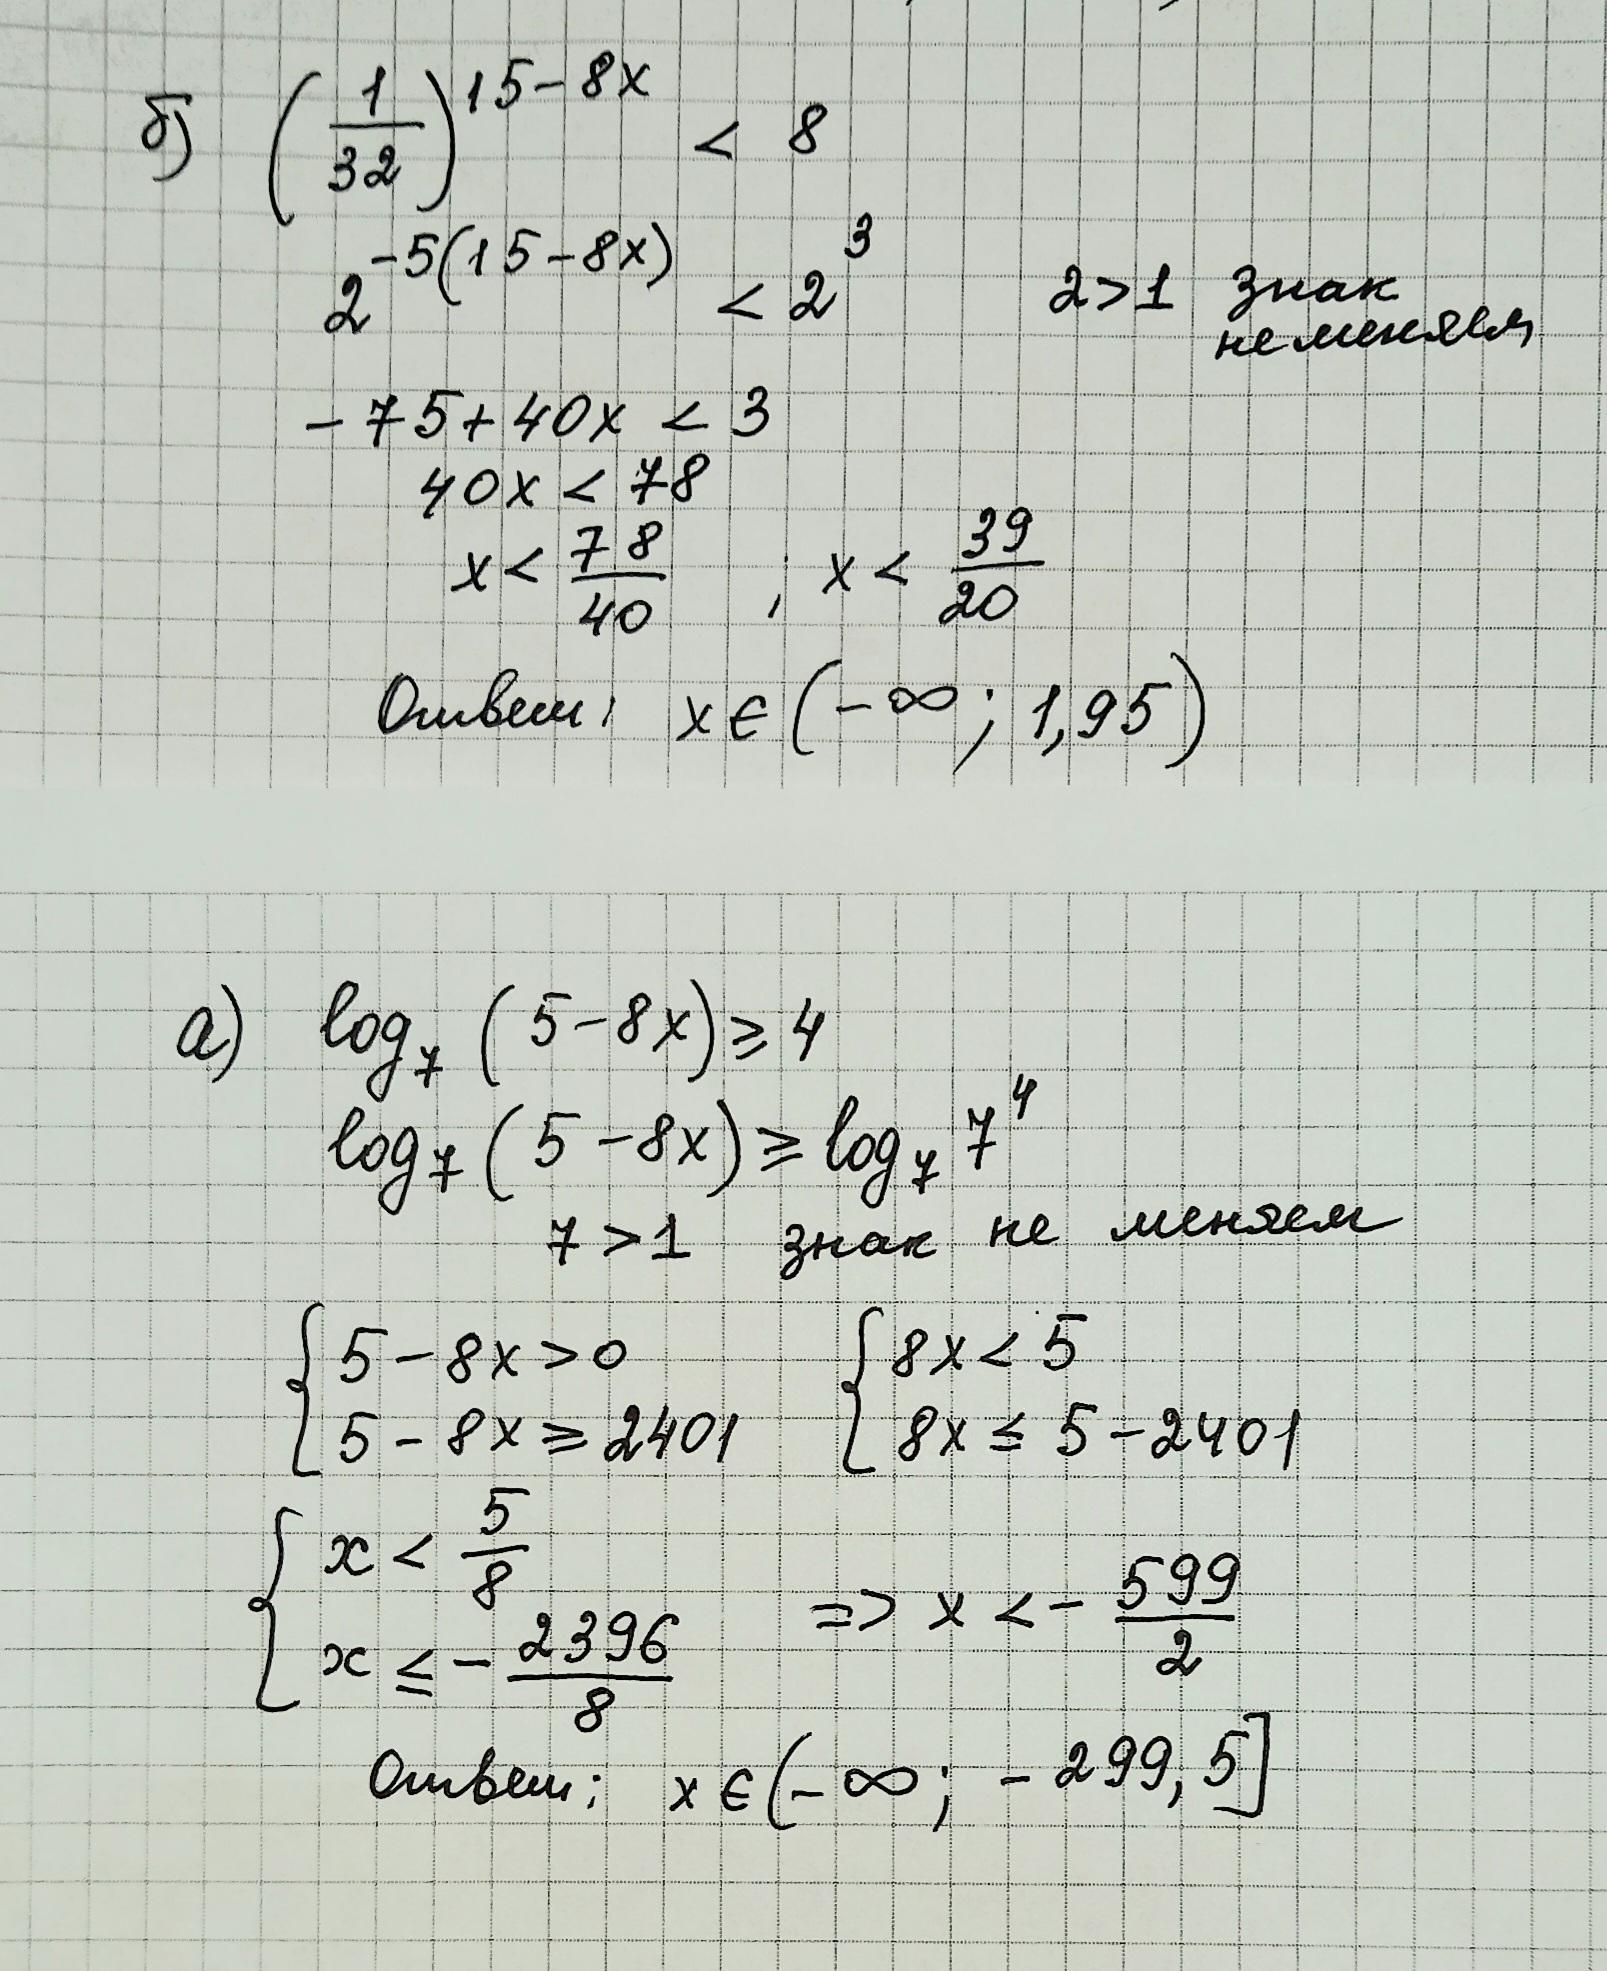 б) (1/32)^(15-8x) < 8
2^(-5(15-8x)) < 2^3 2>1 знак
не меняем
-75+40x < 3
40x < 78
x < 78/40 ; x < 39/20
Ответ: x ∈ (-∞; 1,95)
а) log₇(5-8x) ≥ 4
log₇(5-8x) ≥ log₇ 7⁴
7 > 1 знак не меняем
{ 5-8x > 0 { 8x < 5
5-8x ≥ 2401 8x ≤ 5-2401
{ x < 5/8
x ≤ -2396/8 => x < -599/2
Ответ: x ∈ (-∞; -299,5]